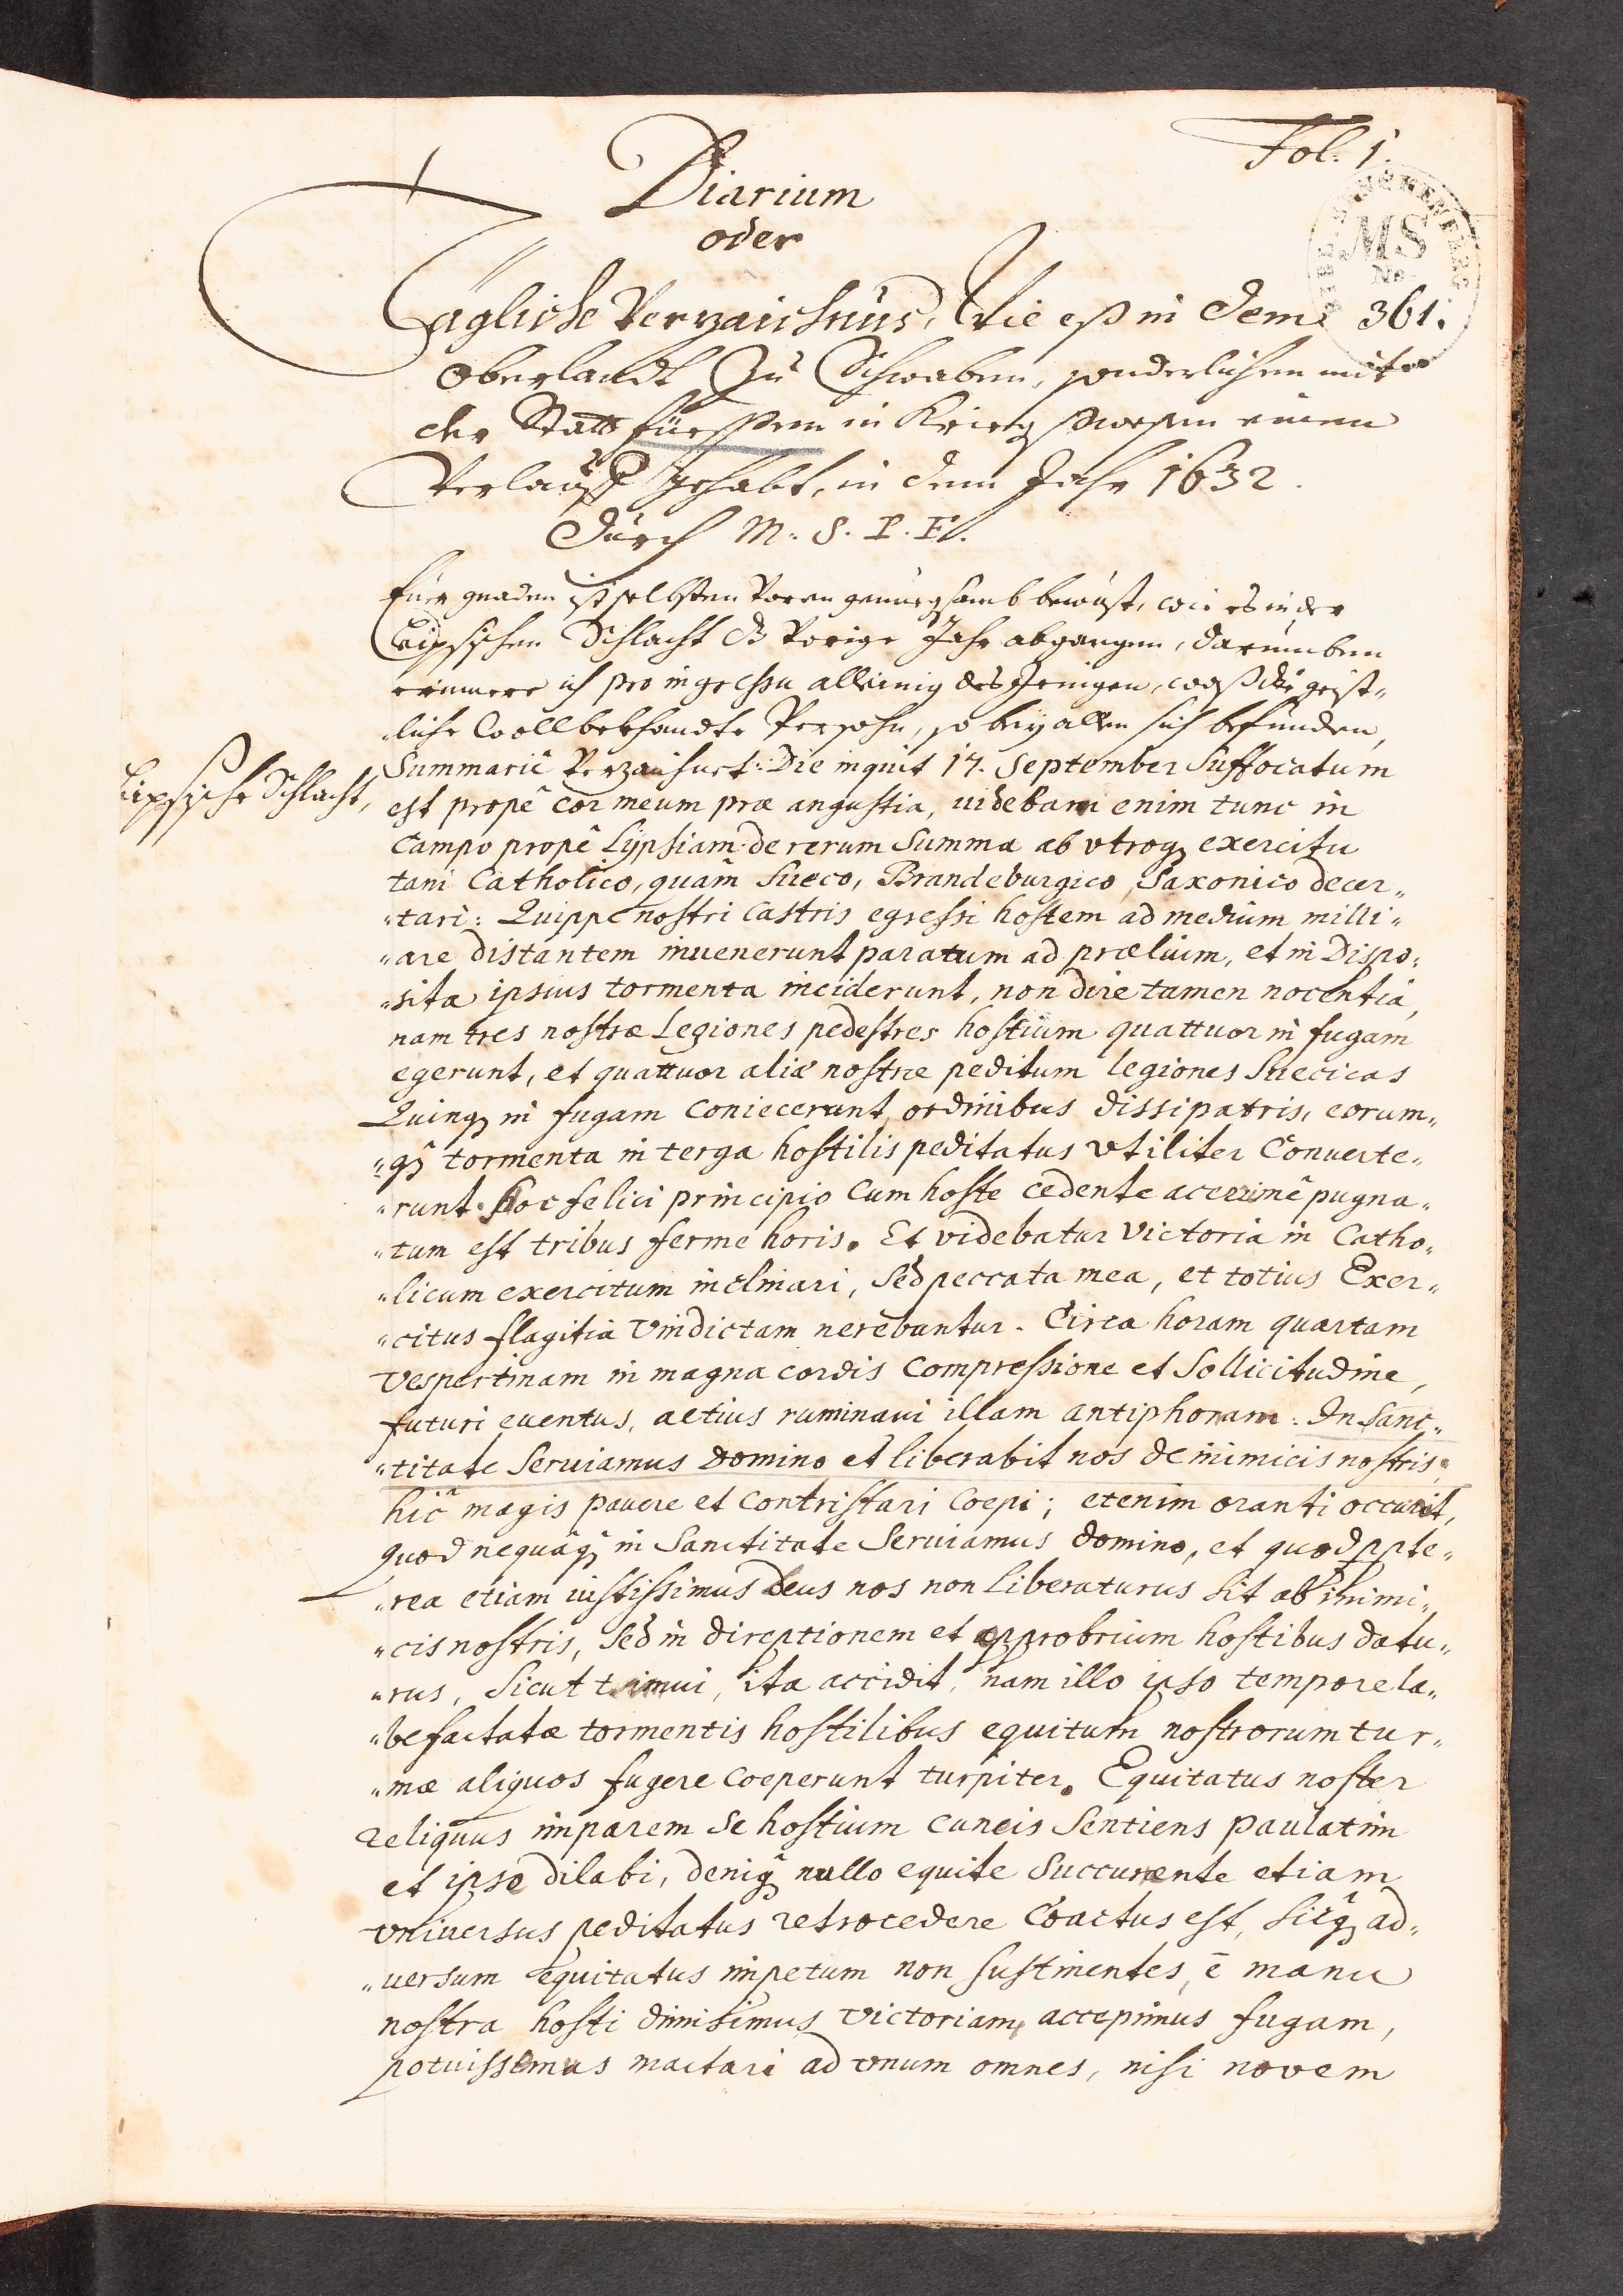 Fol: 1.
Diarium
oder
Tägliche Verzaichnus, Wie eß in dem
MS
No
361.
Oberlandt Zu Schwaben, sonderlichen mit
der Statt füeßen in Kriegßwesen einen
Verlauff gehabt, in dem Jahr 1632.
Durch M. S. P. F.
Euer gnaden ist selbsten Voren genuegsamb bewust, wie es in der
Leipsischen Schlacht dß Vorige Jahr abgangen, darumben
erinnere ich pro ingressu alleinig des Jenigen, waß die geist„
liche wollbekhandte Persohn, so bey allen sich befunden,
Leipsische Schlacht,
Summariê Verzaichnet: Die inquit 17. September Suffocatum
est propê cor meum præ angustia, uidebam enim tunc in
Campo propê Lypsiam de rerum Summa ab vtroq exercitu
tam Catholico, quâm Sueco, Brandeburgico, Saxonico decer„
„tari: Quippe nostri castris egressi hostem ad medium milli„
„are distantem inuenerunt paratum ad prælium, et in Dispo„
„sita ipsius tormenta inciderunt, non dire tamen nocentia,
nam tres nostræ Legiones pedestres hostium quattuor in fugam
egerunt, et quattuor aliæ nostræ peditum legiones Suecicas
Quinq in fugam coniecerunt ordinibus dissipatris, eorum„
„q tormenta in terga hostilis peditatus vtiliter Conuerte„
„runt. Hoc felici principio Cum hoste cedente acerrimê pugna„
„tum est tribus ferme horis. Et videbatur Victoria in Catho„
„licum exercitum inclinari, Sed peccata mea, et totius Exer„
„citus flagitia Vindictam merebantur. Circa horam quartam
Vespertinam in magna cordis Compressione et Sollicitudine,
futuri euentus, altius ruminaui illam antiphonam: In Sanc„
„titate Seruiamus Domino et liberabit nos de inimicis nostris,
hic magis pauere et Contristari Coepi; etenim oranti occurrit,
quod nequâq in Sanctitate Seruiamus Domino, et quod ppte„
„rea etiam iustissimus Deus nos non Liberaturus sit ab inimi„
„cis nostris, Sed in direptionem et opprobrium hostibus datu„
„rus, Sicut timui, ita accidit, nam illo ipso tempore la„
„befactatæ tormentis hostilibus equitum nostrorum tur„
„mæ aliquos fugere coeperunt turpiter. Equitatus noster
reliquus imparem se hostium cuneis Sentiens paulatim
et ipse dilabi, deniq nullo equite Succurrente etiam
vniuersus peditatus retrocedere Coactus est, Sicq ad„
„uersum equitatus impetum non Sustinentes, ê manu
nostra hosti dimisimus Victoriam, accepimus fugam,
potuissemus mactari ad vnum omnes, nisi novem